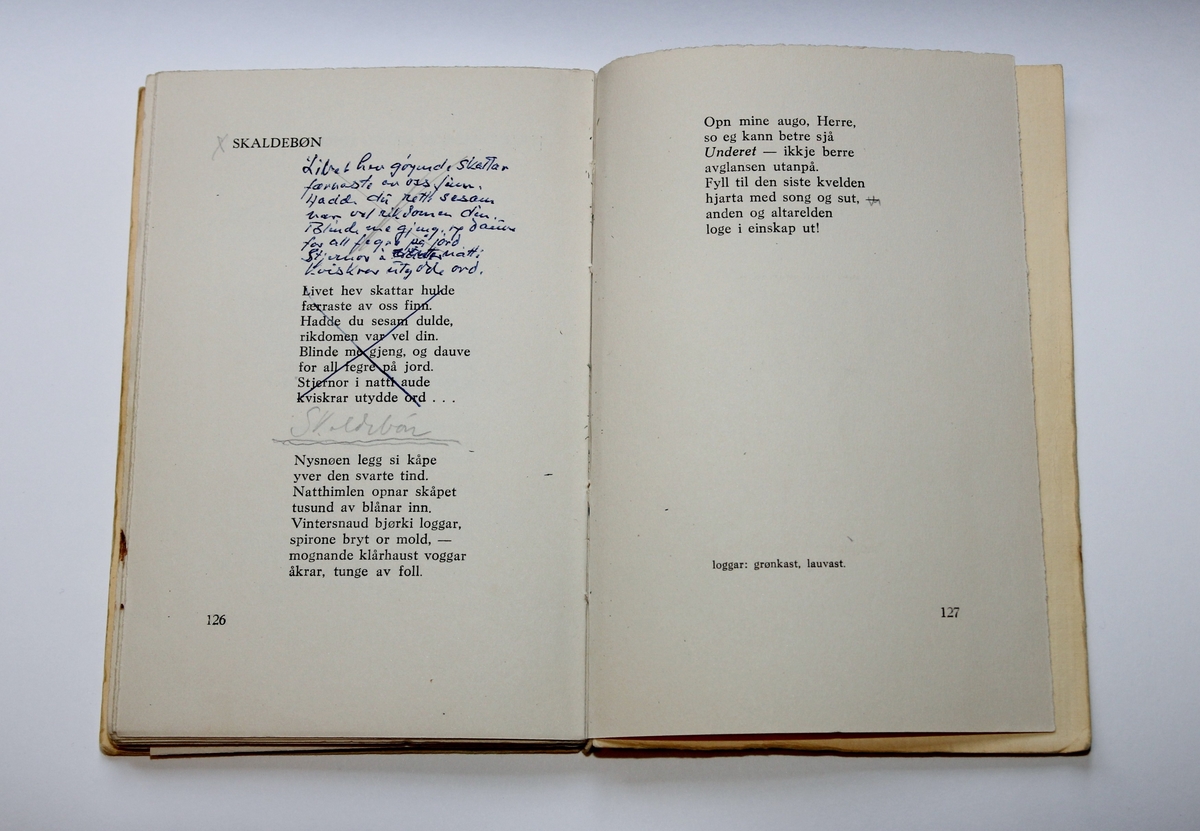 SKALDEBØN
Livet hev gøymde skattar
færraste av oss finn.
Hadde du rett sesam
var vel rikdomen din.
Blinde me gjeng, og dauve
for all fegre på jord
Stjernor i natti
kviskrar utydde ord.
Livet hev skattar hulde
færraste av oss finn.
Hadde du sesam dulde,
rikdomen var vel din.
Blinde me gjeng, og dauve
for all fegre på jord.
Stjernor i natti aude
kviskrar utydde ord . . .
Skaldebøn
Nysnøen legg si kåpe
yver den svarte tind.
Natthimlen opnar skåpet
tusund av blånar inn.
Vintersnaud bjørki loggar,
spirone bryt or mold, —
mognande klårhaust voggar
åkrar, tunge av foll.
126
Opn mine augo, Herre,
so eg kann betre sjå
Underet — ikkje berre
avglansen utanpå.
Fyll til den siste kvelden
hjarta med song og sut,
anden og altarelden
loge i einskap ut!
loggar: grønkast, lauvast.
127